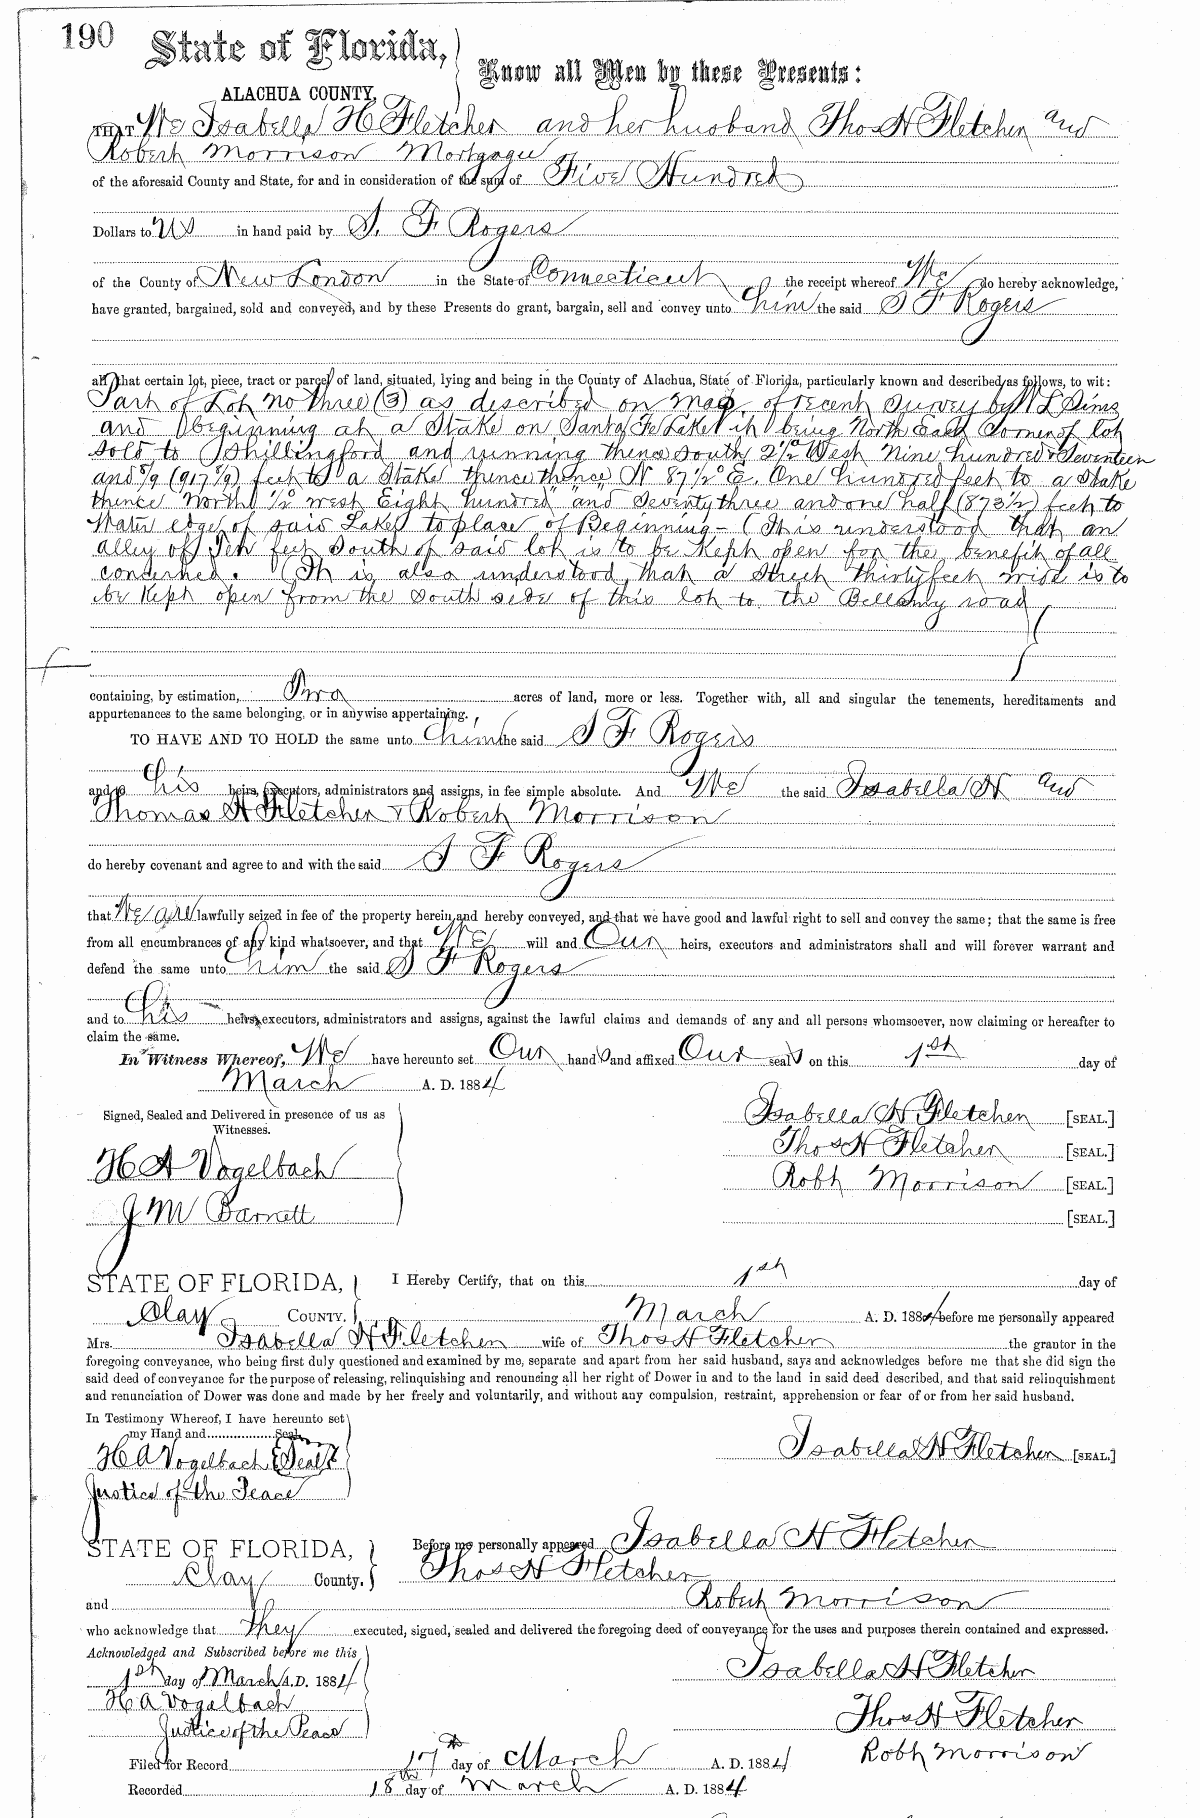 190
State of Florida,
Know all Men by these Presents:
ALACHUA COUNTY,
THAT We Isabella H Fletcher and her husband Thos H Fletcher and
Robert Morrison Mortgagee
of the aforesaid County and State, for and in consideration of the sum of Five Hundred
Dollars to us in hand paid by S. F Rogers
of the County of New London in the State of Connecticut the receipt whereof We do hereby acknowledge,
have granted, bargained, sold and conveyed, and by these Presents do grant, bargain, sell and convey unto him the said S F Rogers
all that certain lot, piece, tract or parcel of land, situated, lying and being in the County of Alachua, State of Florida, particularly known and described as follows, to wit:
Part of Lot No three (3) as described on map of recent survey by N L Sims
and beginning at a Stake on Santa Fe Lake it being North East Corner of lot
sold to Shillingford and running thence South 2½° West Nine hundred & Seventeen
and 5/9 (917 5/9) feet to a Stake thence thence N 87½° E. One hundred feet to a Stake
thence North ½° west Eight hundred and Seventy three and one half (873½) feet to
Water edge of said Lake to place of Beginning - (It is understood that an
alley of Ten feet South of said lot is to be Kept open for the benefit of all
concerned. (It is also understood that a Street thirty feet wide is to
be Kept open from the South side of this lot to the Bellamy road
containing, by estimation, Two acres of land, more or less. Together with, all and singular the tenements, hereditaments and
appurtenances to the same belonging, or in anywise appertaining.
TO HAVE AND TO HOLD the same unto him the said S F Rogers
and to his heirs, executors, administrators and assigns, in fee simple absolute. And We the said Isabella H and
Thomas H Fletcher & Robert Morrison
do hereby covenant and agree to and with the said S F Rogers
that We are lawfully seized in fee of the property herein and hereby conveyed, and that we have good and lawful right to sell and convey the same; that the same is free
from all encumbrances of any kind whatsoever, and that We will and Our heirs, executors and administrators shall and will forever warrant and
defend the same unto him the said S F Rogers
and to his heirs, executors, administrators and assigns, against the lawful claims and demands of any and all persons whomsoever, now claiming or hereafter to
claim the same.
In Witness Whereof, We have hereunto set Our hands and affixed Our seals on this 1st day of
March A. D. 1884
Signed, Sealed and Delivered in presence of us as
Witnesses.
Isabella H Fletcher [SEAL.]
Thos H Fletcher [SEAL.]
H A Vogelbach
Robt Morrison [SEAL.]
J M Barnett
[SEAL.]
STATE OF FLORIDA,
I Hereby Certify, that on this 1st day of
Clay COUNTY.
March A. D. 1884 before me personally appeared
Mrs. Isabella H Fletcher wife of Thos H Fletcher the grantor in the
foregoing conveyance, who being first duly questioned and examined by me, separate and apart from her said husband, says and acknowledges before me that she did sign the
said deed of conveyance for the purpose of releasing, relinquishing and renouncing all her right of Dower in and to the land in said deed described, and that said relinquishment
and renunciation of Dower was done and made by her freely and voluntarily, and without any compulsion, restraint, apprehension or fear of or from her said husband.
In Testimony Whereof, I have hereunto set
my Hand and Seal
H A Vogelbach {Seal}
Isabella H Fletcher [SEAL.]
Justice of the Peace
STATE OF FLORIDA,
Before me personally appeared Isabella H Fletcher
Clay County.
Thos H Fletcher
and Robert Morrison
who acknowledge that they executed, signed, sealed and delivered the foregoing deed of conveyance for the uses and purposes therein contained and expressed.
Acknowledged and Subscribed before me this
1st day of March A.D. 1884
Isabella H Fletcher
H A Vogelbach
Justice of the Peace
Thos H Fletcher
Robt Morrison
Filed for Record 17th day of March A. D. 1884
Recorded 18th day of March A. D. 1884